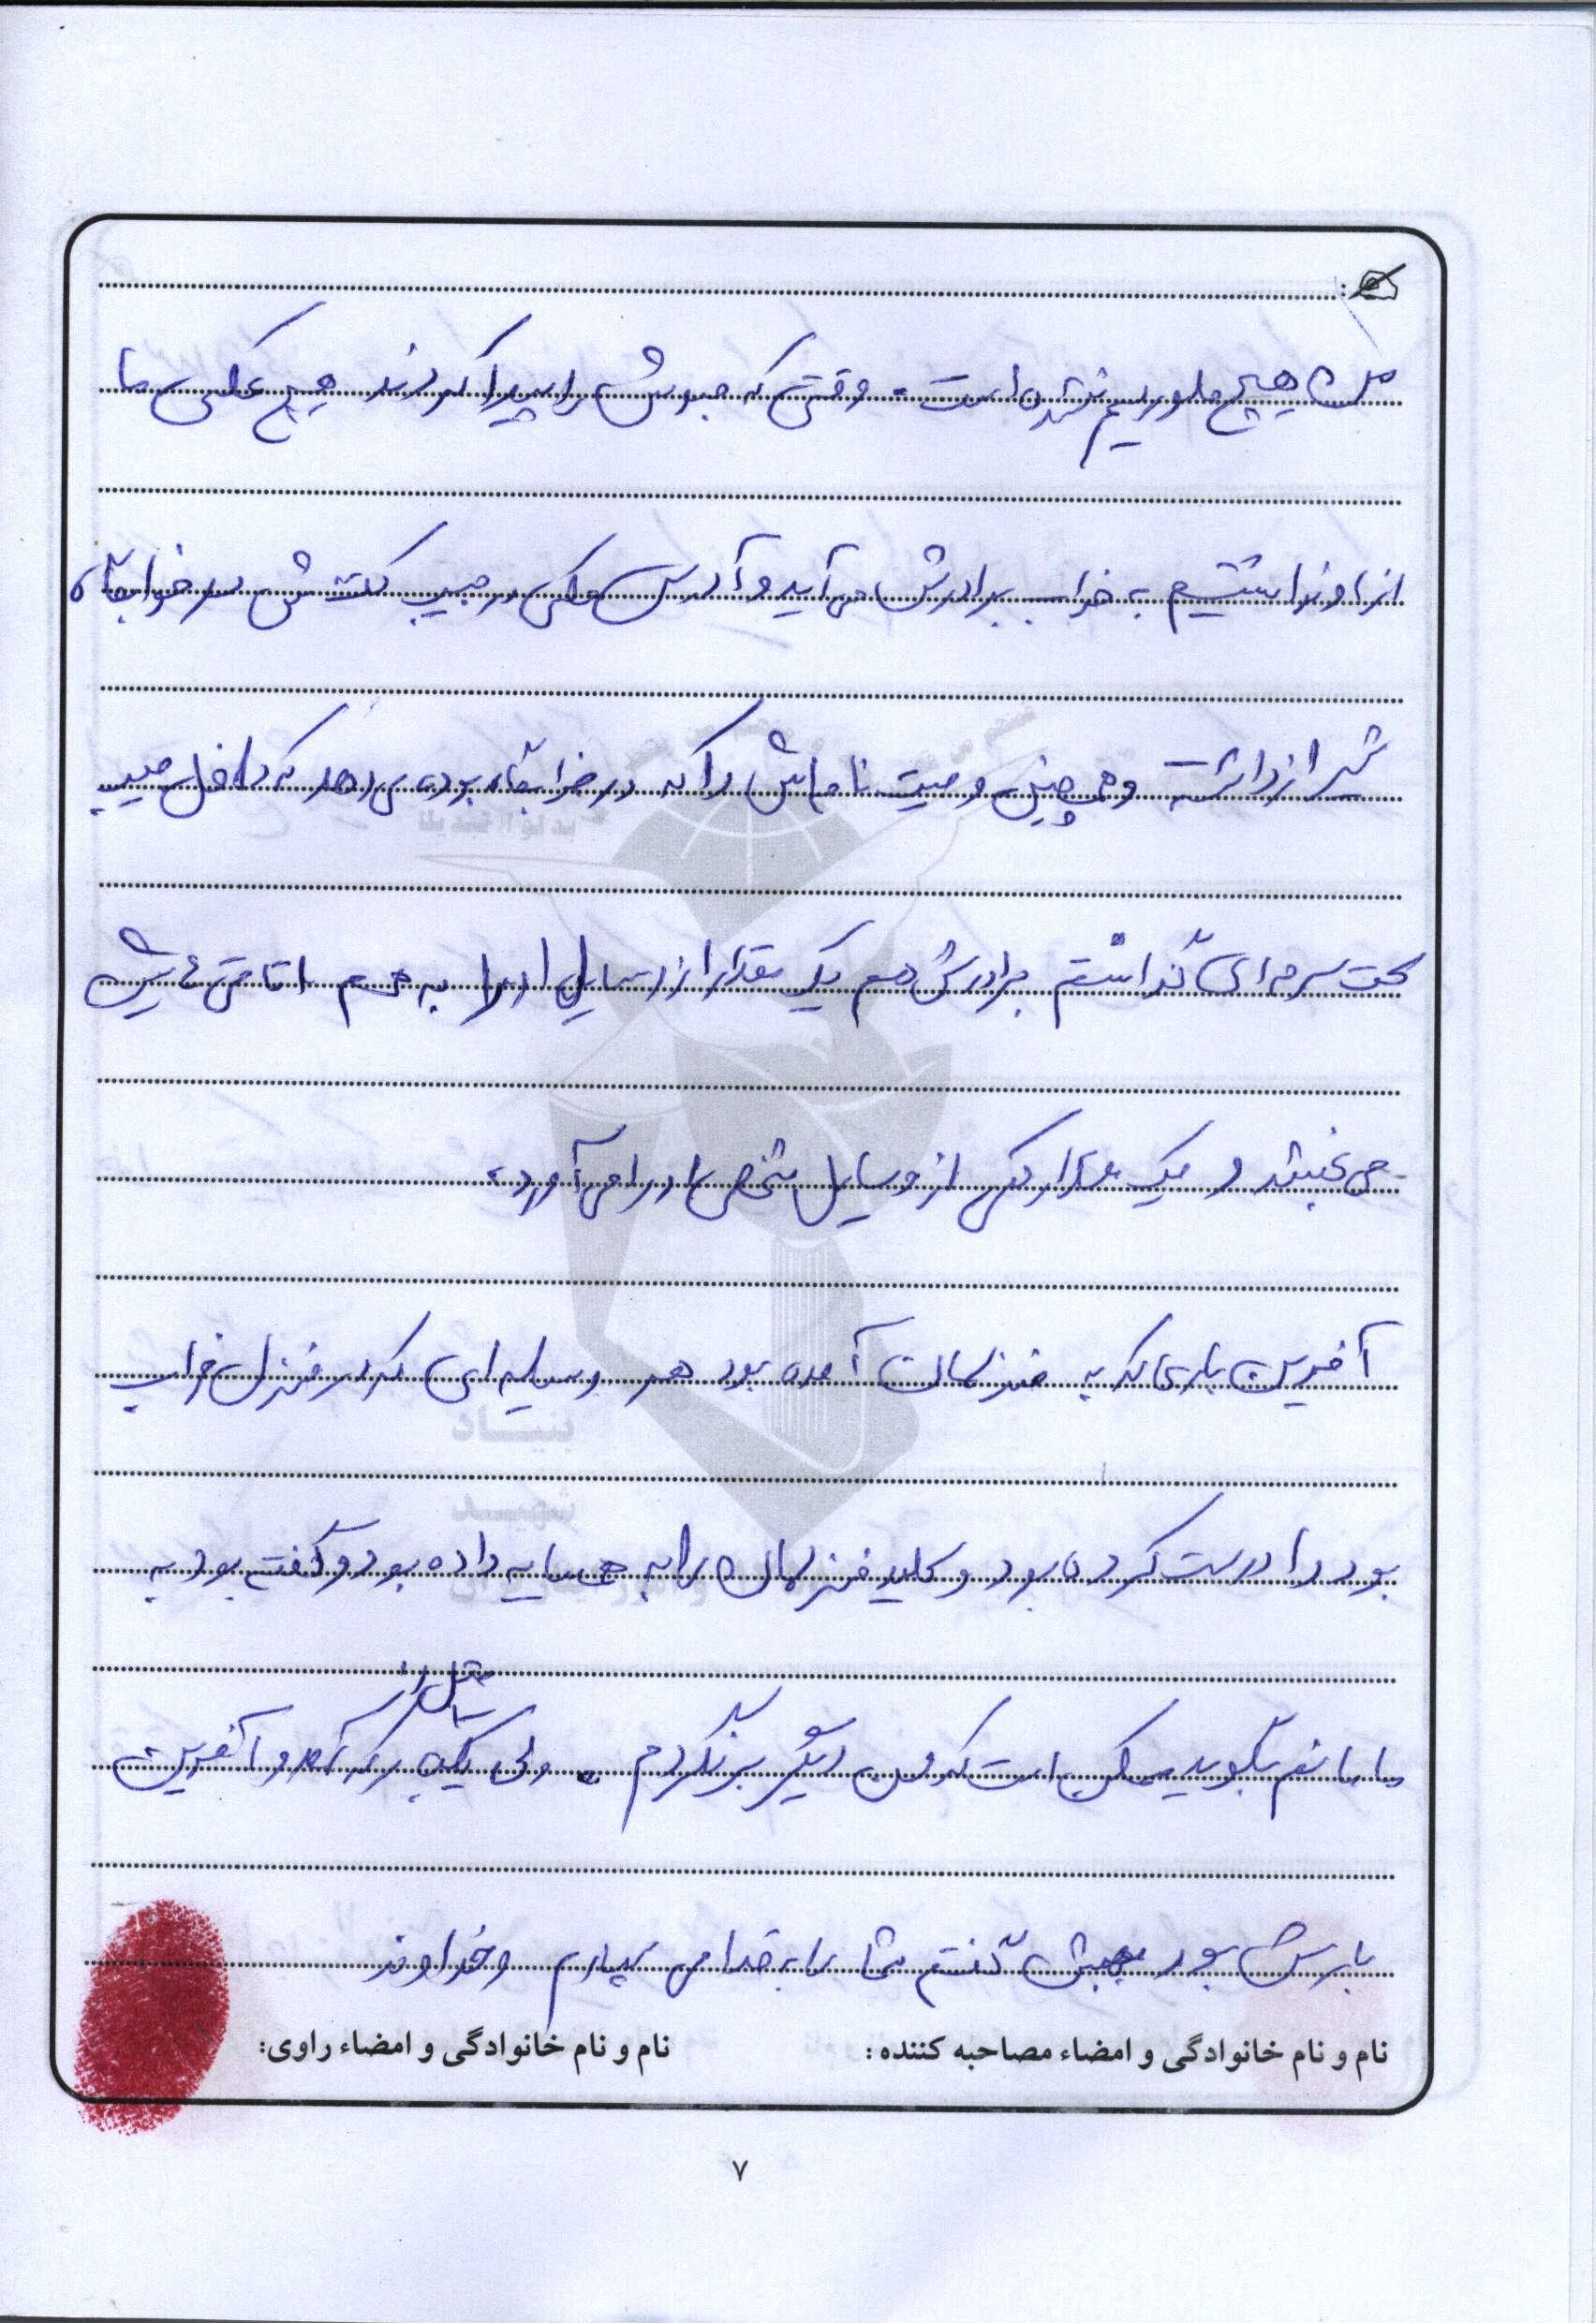 هیچ طور یم نشده است. وقتی که جسدش را پیدا کردند هیچ عکسی ما
از او نداشتیم به خواب برادرش می آید و آدرس عکس در جیب کتش در خوابگاه
شیراز داشته و همچنین وصیت نامه اش را که در خوابگاه بوده می دهد که داخل جیب
گذاشتم برادرش هم یک مقدار از وسایل او را به هم اتاقی هایش
می بخشد و یک مقدار کمی از وسایل شخصی او را می آورد.
آخرین باری که به منزلمان آمده بود هر وسایله ای که در منزل خراب
بود را درست کرده بود و کلید منزلمان را به همسایه داده بود و گفته بود به
قبل از
مامانم بگوید ممکن است که من دیگر برنگردم. ولی که آمد و آخرین
بارش بود بهش گفتم شما را به خدا می سپارم و خداوند
نام و نام خانوادگی و امضاء مصاحبه کننده:
نام و نام خانوادگی و امضاء راوی:
بنیاد
۷